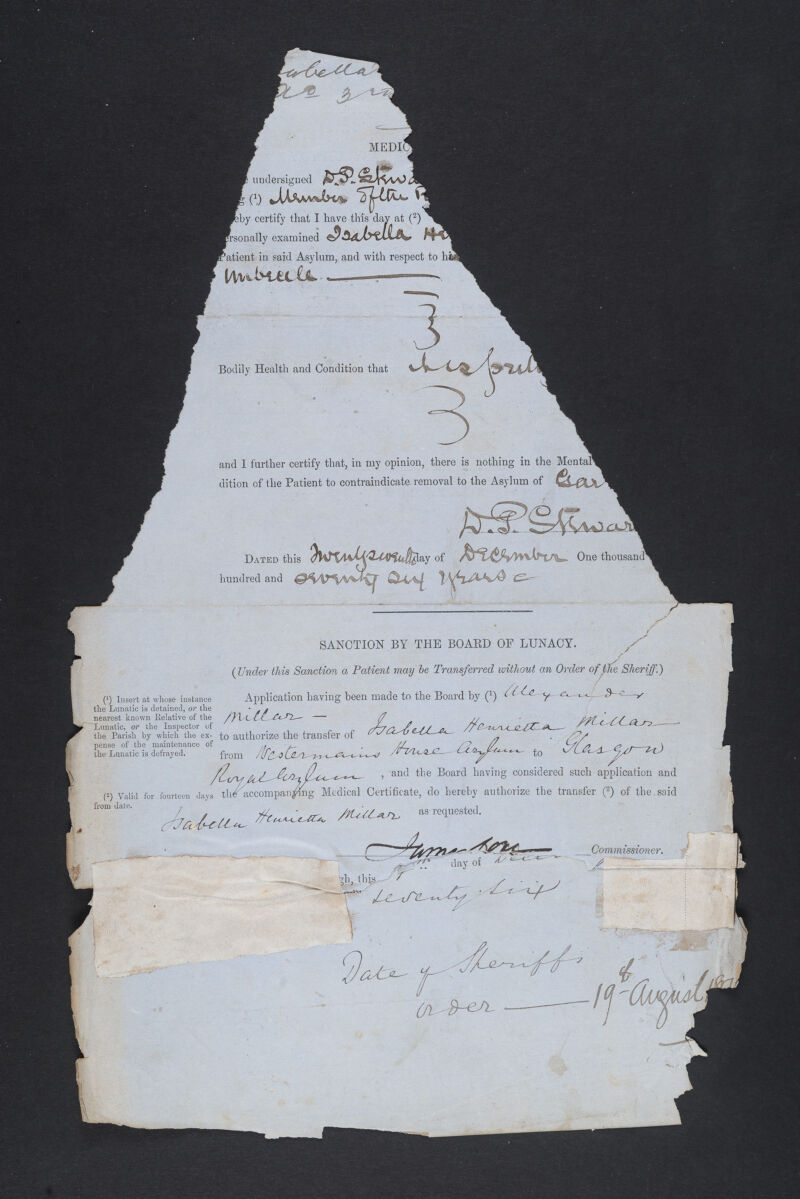 abella
MEDIC
undersigned D.P. Stewa
g (¹) Member of the R
eby certify that I have this day at (²)
ersonally examined Isabella He
Patient in said Asylum, and with respect to hi
Imbecile
Bodily Health and Condition that
and I further certify that, in my opinion, there is nothing in the Mental
dition of the Patient to contraindicate removal to the Asylum of Gar
D. P. Stewar
DATED this Twentyseventh day of December One thousand
hundred and seventy six years
SANCTION BY THE BOARD OF LUNACY.
(Under this Sanction a Patient may be Transferred without an Order of the Sheriff.)
(¹) Insert at whose instance
the Lunatic is detained, or the
nearest known Relative of the
Lunatic, or the Inspector of
the Parish by which the ex-
pense of the maintenance of
the Lunatic is defrayed.
(²) Valid for fourteen days
from date.
Application having been made to the Board by (¹) Alexander
Millar
to authorize the transfer of Isabella Henrietta Millar
from Westermains House Asylum to Glasgow
Royal Asylum, and the Board having considered such application and
the accompanying Medical Certificate, do hereby authorize the transfer (²) of the said
Isabella Henrietta Millar as requested.
Commissioner.
gh, this day of
seventy six
Date of Sheriffs
order — 19th August